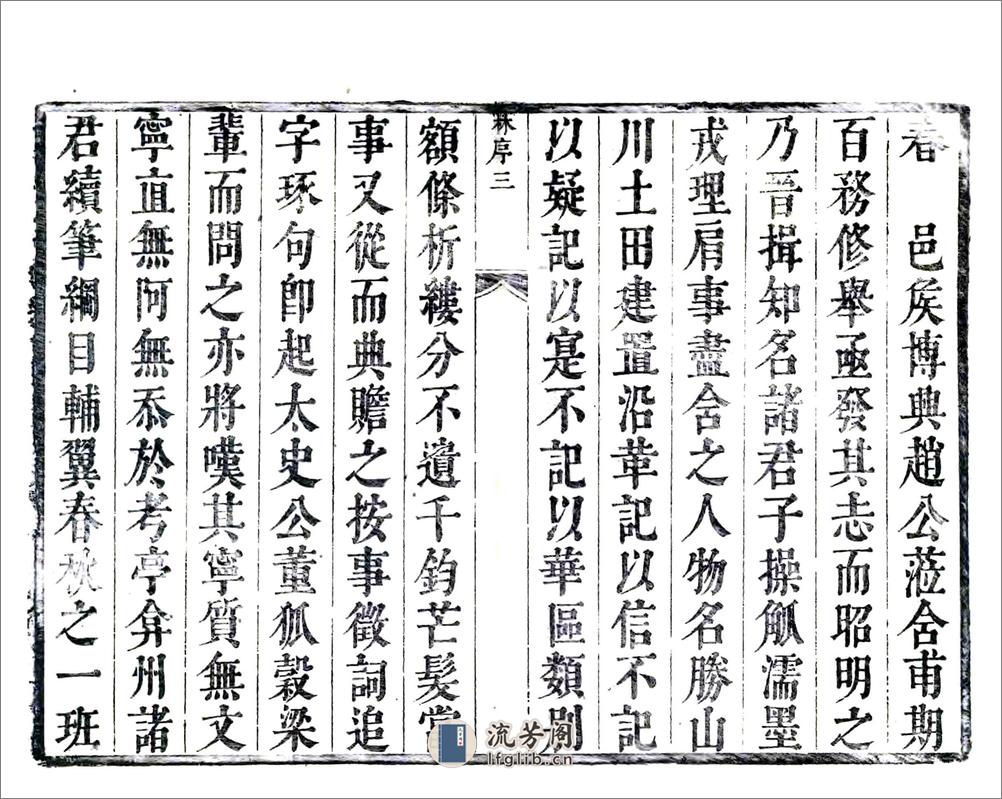 春　邑矦博興趙公蒞舍甫期
百務修舉亟發其志而昭明之
乃晋揖知名諸君子操觚濡墨
戎理肩事盡舍之人物名勝山
川土田建置沿革記以信不記
以疑記以寔不記以華區類別
秝序三
額條析縷分不遺千鈞芒髮當
事又從而典贍之按事徵詞追
字琢句卽起太史公董狐榖梁
輩而問之亦將嘆其寧質無文
寧直無阿無忝於考亭弇州諸
君續筆綱目輔翼春秋之一班
流芳阁
lfglib.cn